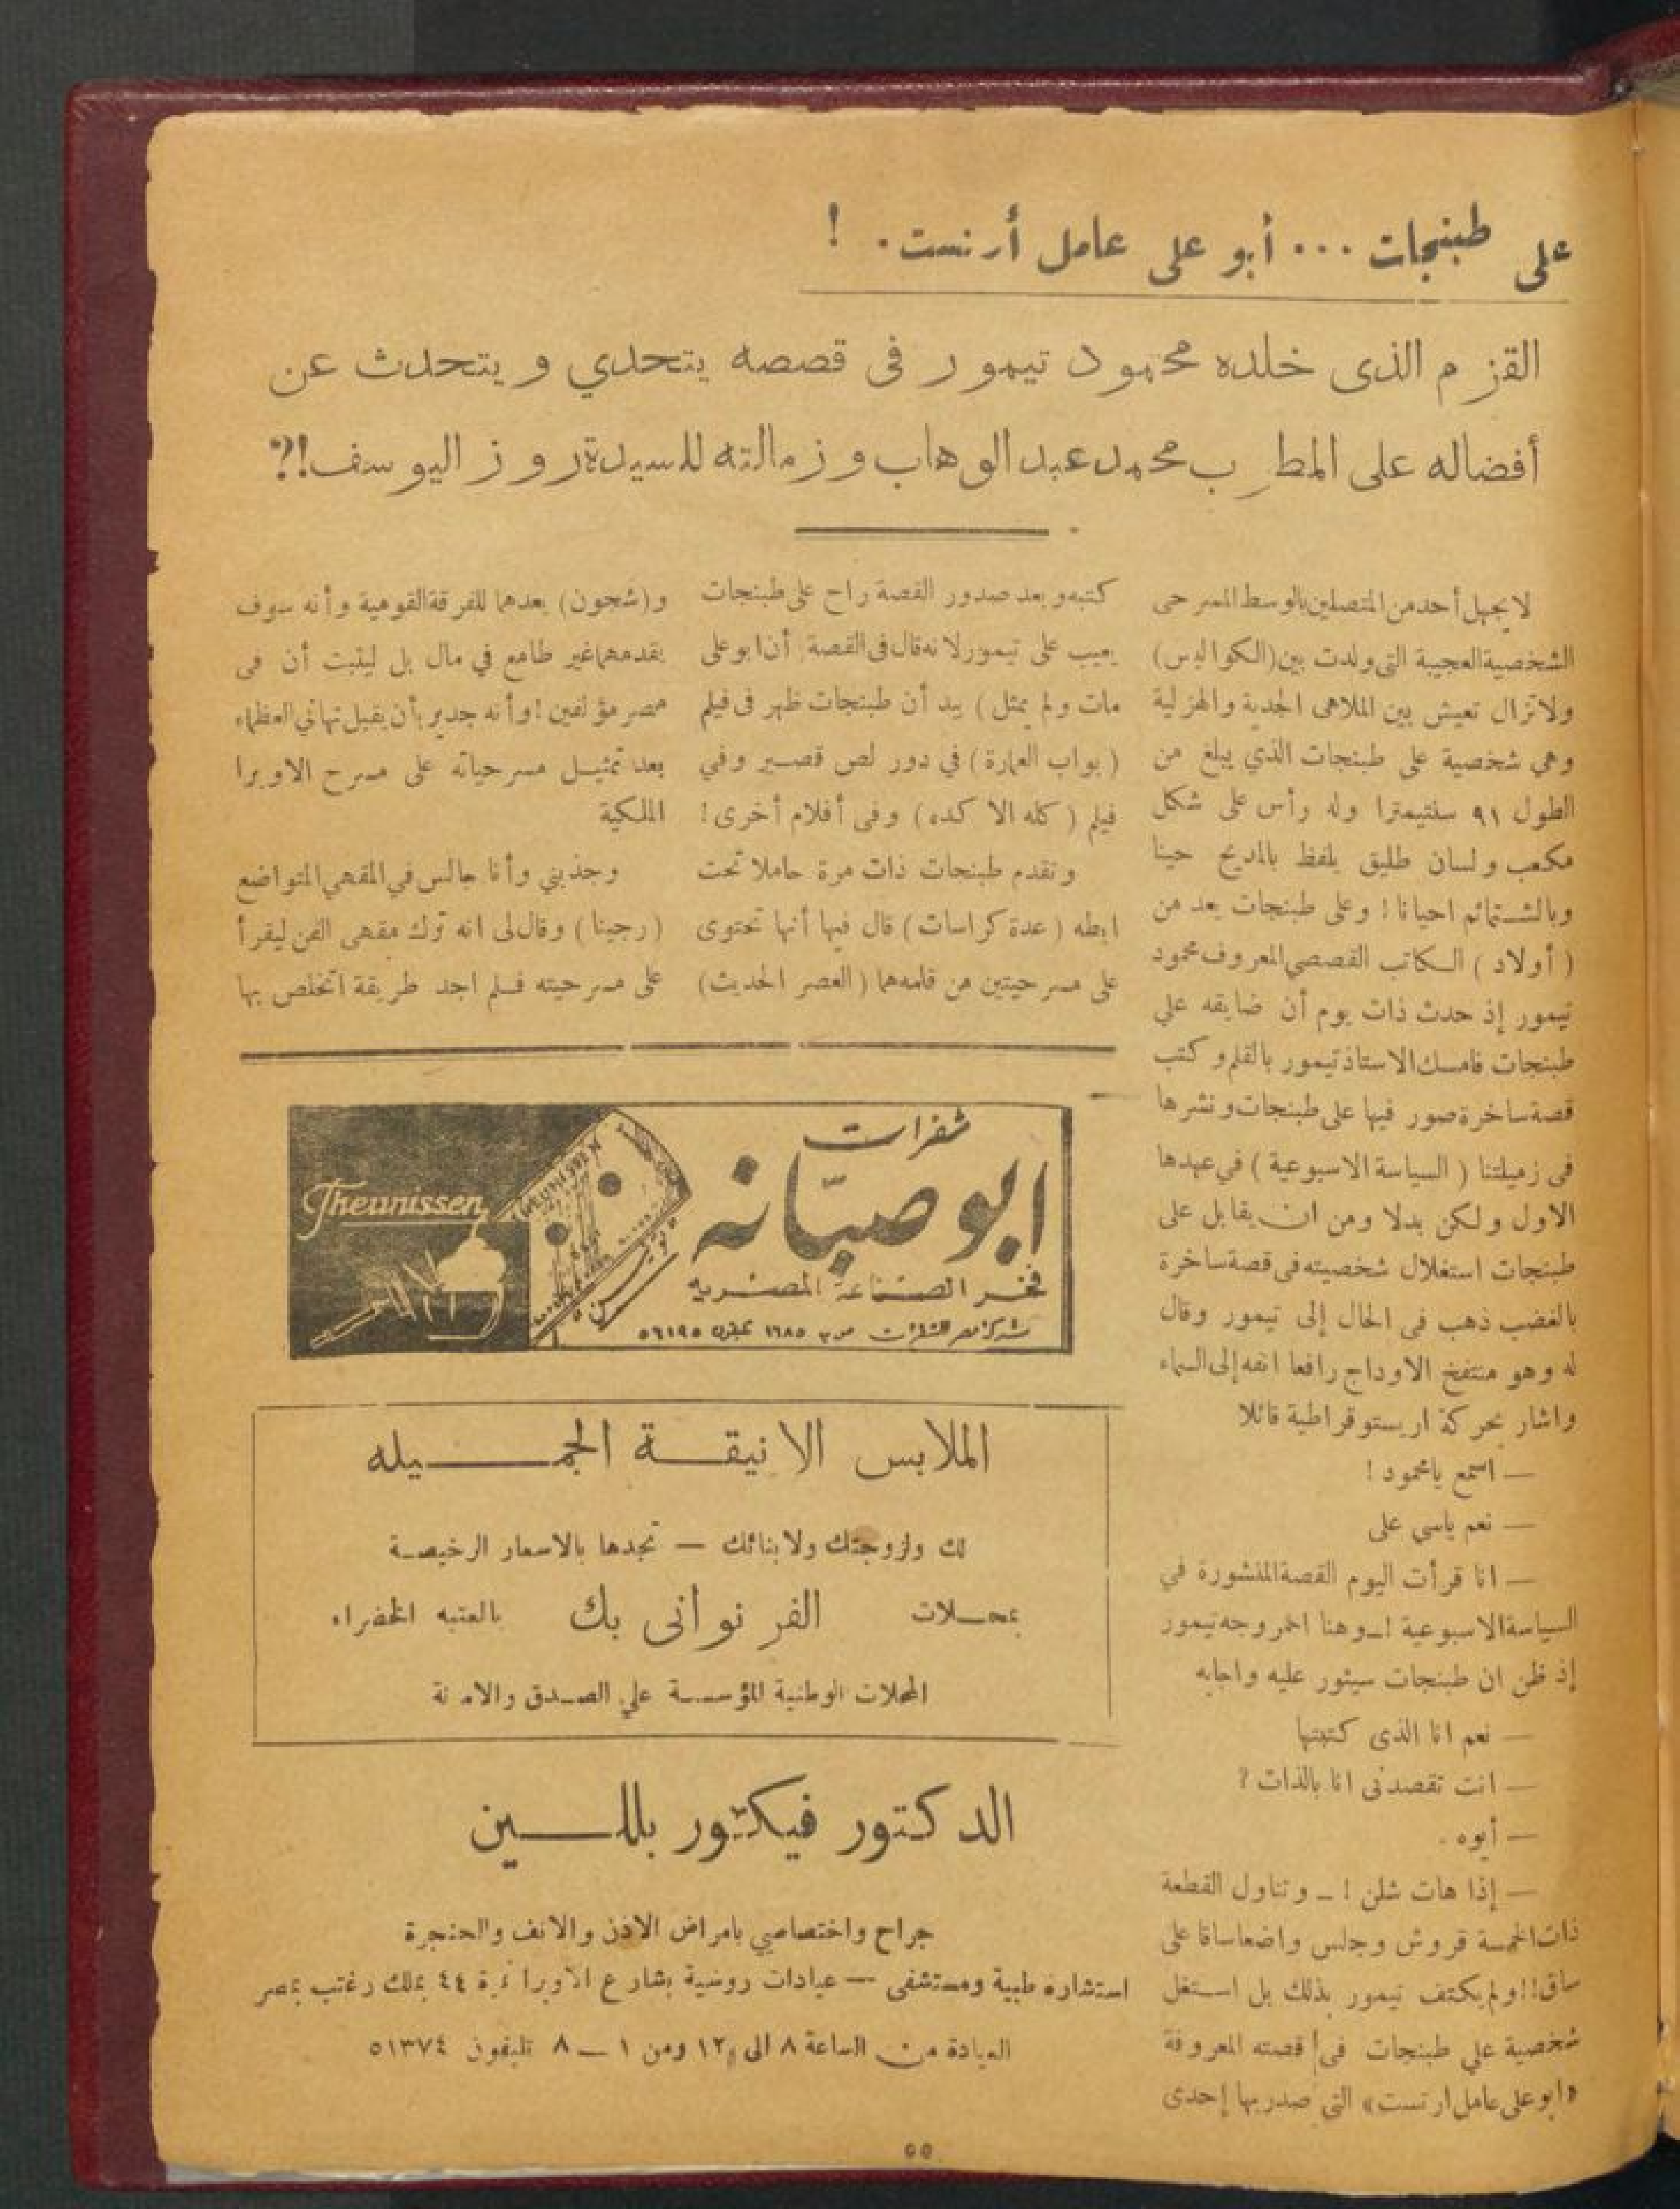 على طبنجات ... أبو على عامل أرتست. !
القزم الذى خلده محمود تيمور فى قصصه يتحدي ويتحدث عن
أفضاله على المطرب محمد عبد الوهاب وزمالته للسيدة روز اليوسف!؟
لا يجهل أحد من المتصلين بالوسط المسرحى
الشخصية العجيبة التى ولدت بين (الكواليس)
ولا تزال تعيش بين الملاهى الجدية والهزلية
وهي شخصية على طبنجات الذي يبلغ من
الطول ٩١ سنتيمترا وله رأس على شكل
مكعب ولسان طليق يلفظ بالمديح حينا
وبالشتائم احيانا ! وعلى طبنجات يعد من
( أولاد ) الكاتب القصصي المعروف محمود
تيمور إذ حدث ذات يوم أن ضايقه علي
طبنجات فامسك الاستاذ تيمور بالقلم وكتب
قصة ساخرة صور فيها على طبنجات ونشرها
فى زميلتنا ( السياسة الاسبوعية ) في عهدها
الاول ولكن بدلا ومن ان يقابل على
طبنجات استغلال شخصيته فى قصة ساخرة
بالغضب ذهب فى الحال إلى تيمور وقال
له وهو منتفخ الاوداج رافعا انفه إلى السماء
واشار بحركة اريستوقراطية قائلا
— اسمع يامحمود !
— نعم ياسي على
— انا قرأت اليوم القصة المنشورة في
السياسة الاسبوعية ! — وهنا احمر وجه تيمور
إذ ظن ان طبنجات سيثور عليه واجابه
— نعم انا الذى كتبتها
— انت تقصدنى انا بالذات ؟
— أيوه .
— إذا هات شلن ! — وتناول القطعة
ذات الخمسة قروش وجلس واضعا ساقا على
ساق !! ولم يكتف تيمور بذلك بل استغل
شخصية علي طبنجات فى قصته المعروفة
«ابو على عامل ارتست» التي صدر بها إحدى
كتبه وبعد صدور القصة راح على طبنجات
يعيب على تيمور لانه قال فى القصة أن ابو على
مات ولم يمثل ) بيد أن طبنجات ظهر فى فيلم
( بواب العمارة ) في دور لص قصير وفي
فيلم ( كله الا كده ) وفى أفلام أخرى !
وتقدم طبنجات ذات مرة حاملا تحت
ابطه ( عدة كراسات ) قال فيها أنها تحتوى
على مسرحيتين من قلمه هما ( العصر الحديث )
و (شجون) بعدهما للفرقة القومية وأنه سوف
يقدمهما غير طامع في مال بل ليثبت أن فى
مصر مؤلفين ! وأنه جدير بأن يقبل تهانى العظماء
بعد تمثيل مسرحياته على مسرح الاوبرا
الملكية
وجذبني وأنا جالس في المقهي المتواضع
( رجينا ) وقال لى انه ترك مقهى الفن ليقرأ
على مسرحيته فلم اجد طريقة اتخلص بها
شفرات
ابو صبانه
فخر الصناعة المصريه
شركة مصر للشفرات ص.ب ١٦٨٥ تليفون ٥٦١٩٥
Theunissen
THEUNISSEN
الملابس الانيقة الجميله
لك ولزوجتك ولابنائك — تجدها بالاسعار الرخيصة
بمحلات الفرنوانى بك بالعتبه الخضراء
المحلات الوطنية المؤسسة علي الصدق والامانة
الدكتور فيكتور باللسين
جراح واختصاصي بامراض الاذن والانف والحنجرة
استشاره طبية ومستشفى — عيادات روضية بشارع الاوبرا نمرة ٤٤ بملك رغتب بمصر
العيادة من الساعة ٨ الى ١٢ ومن ١ — ٨ تليفون ٥١٣٧٤
٥٥